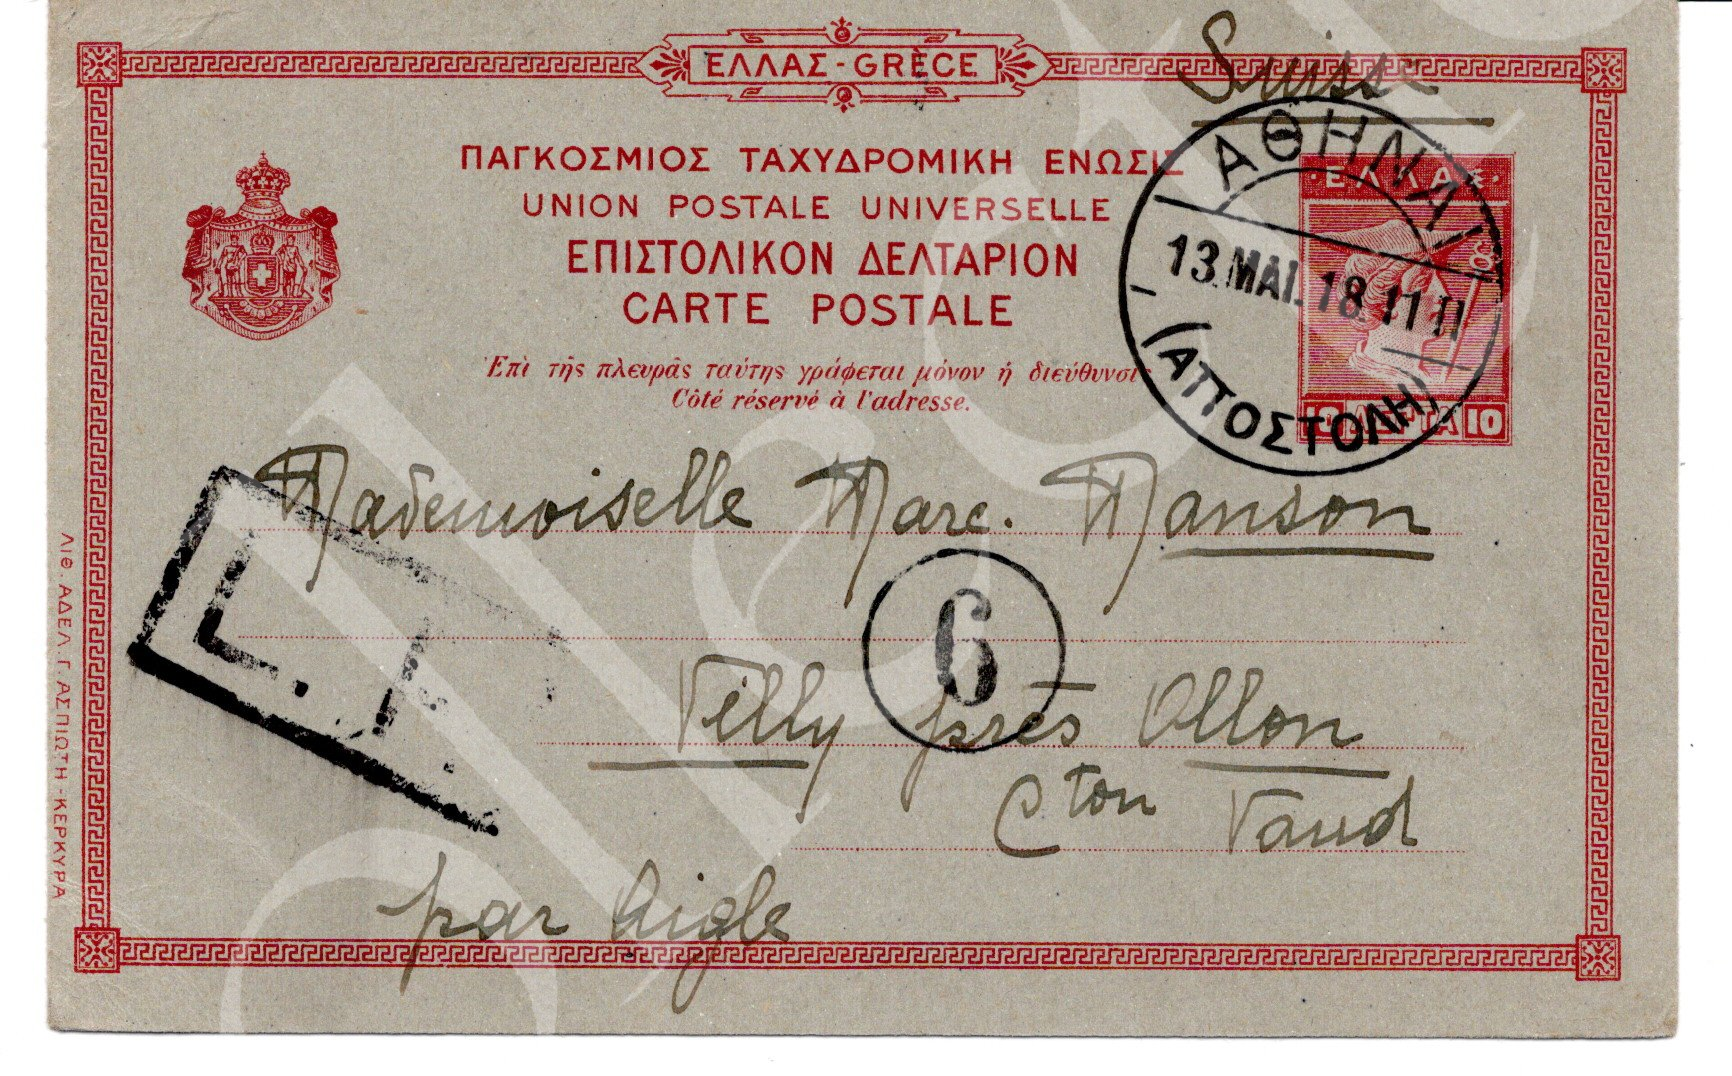 ΕΛΛΑΣ - GRÈCE
Suisse
ΠΑΓΚΟΣΜΙΟΣ ΤΑΧΥΔΡΟΜΙΚΗ ΕΝΩΣΙΣ
UNION POSTALE UNIVERSELLE
ΕΠΙΣΤΟΛΙΚΟΝ ΔΕΛΤΑΡΙΟΝ
CARTE POSTALE
Ἐπὶ τῆς πλευρᾶς ταύτης γράφεται μόνον ἡ διεύθυνσις
Côté réservé à l'adresse.
ΑΘΗΝΑΙ
13.ΜΑΙ.18 11 11
(ΑΠΟΣΤΟΛΗ)
ΕΛΛΑΣ
10 ΛΕΠΤΑ 10
Mademoiselle Marc. Manson
6
Villy près Ollon
Cton Vaud
par Aigle
ΛΙΘ. ΑΔΕΛ. Γ. ΑΣΠΙΩΤΗ - ΚΕΡΚΥΡΑ